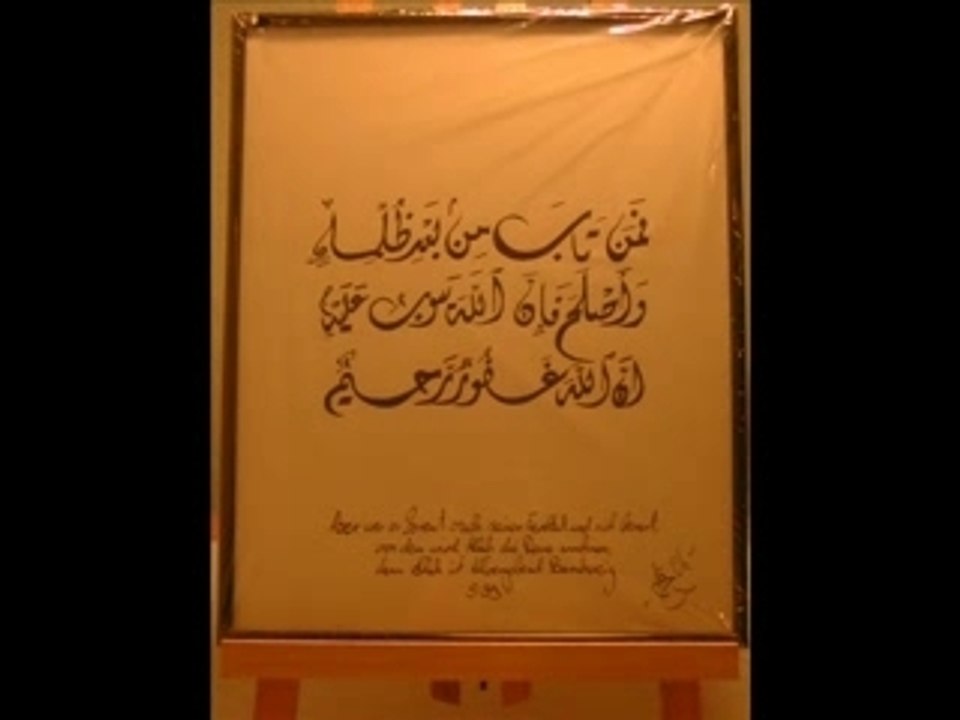 فَمَن تَابَ مِنْ بَعْدِ ظُلْمِهِ
وَأَصْلَحَ فَإِنَّ ٱللَّهَ يَتُوبُ عَلَيْهِ
إِنَّ ٱللَّهَ غَفُورٌ رَّحِيمٌ
Aber wer es bereut nach seiner und sich
von dem wird Allah die Reue
denn Allah ist Allvergebend Barmherzig
5:39